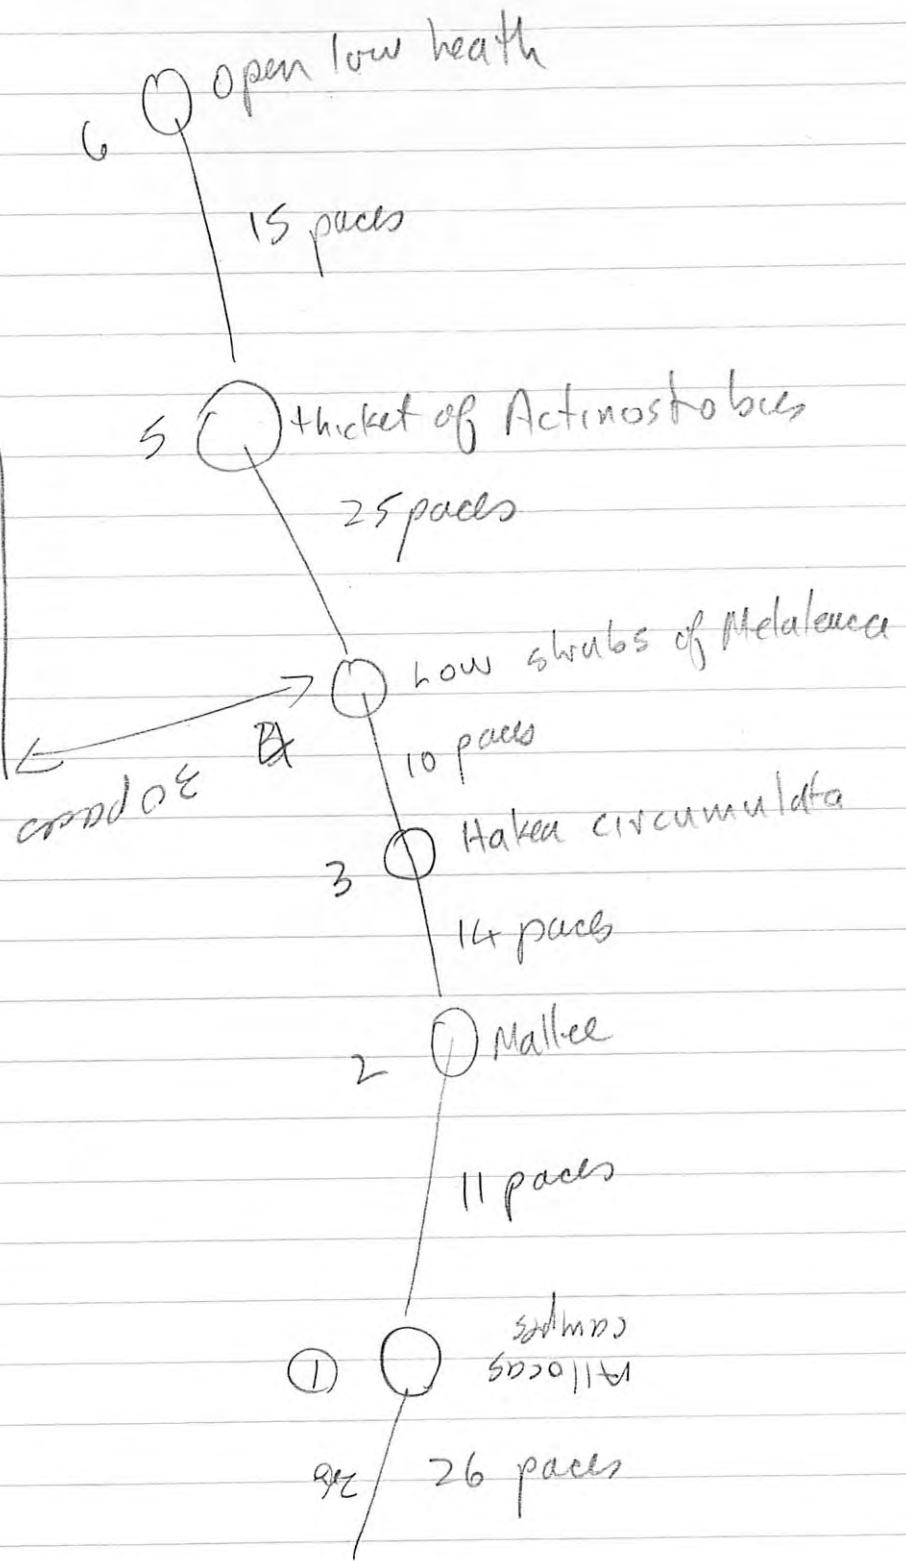 Open low heath
6
15 paces
5
thicket of Actinostrobus
25 paces
Low shrubs of Melaleuca
4
10 paces
30 paces
Hakea circumulata
3
14 paces
Mallee
2
11 paces
1
Allocas
campes
26 paces
26